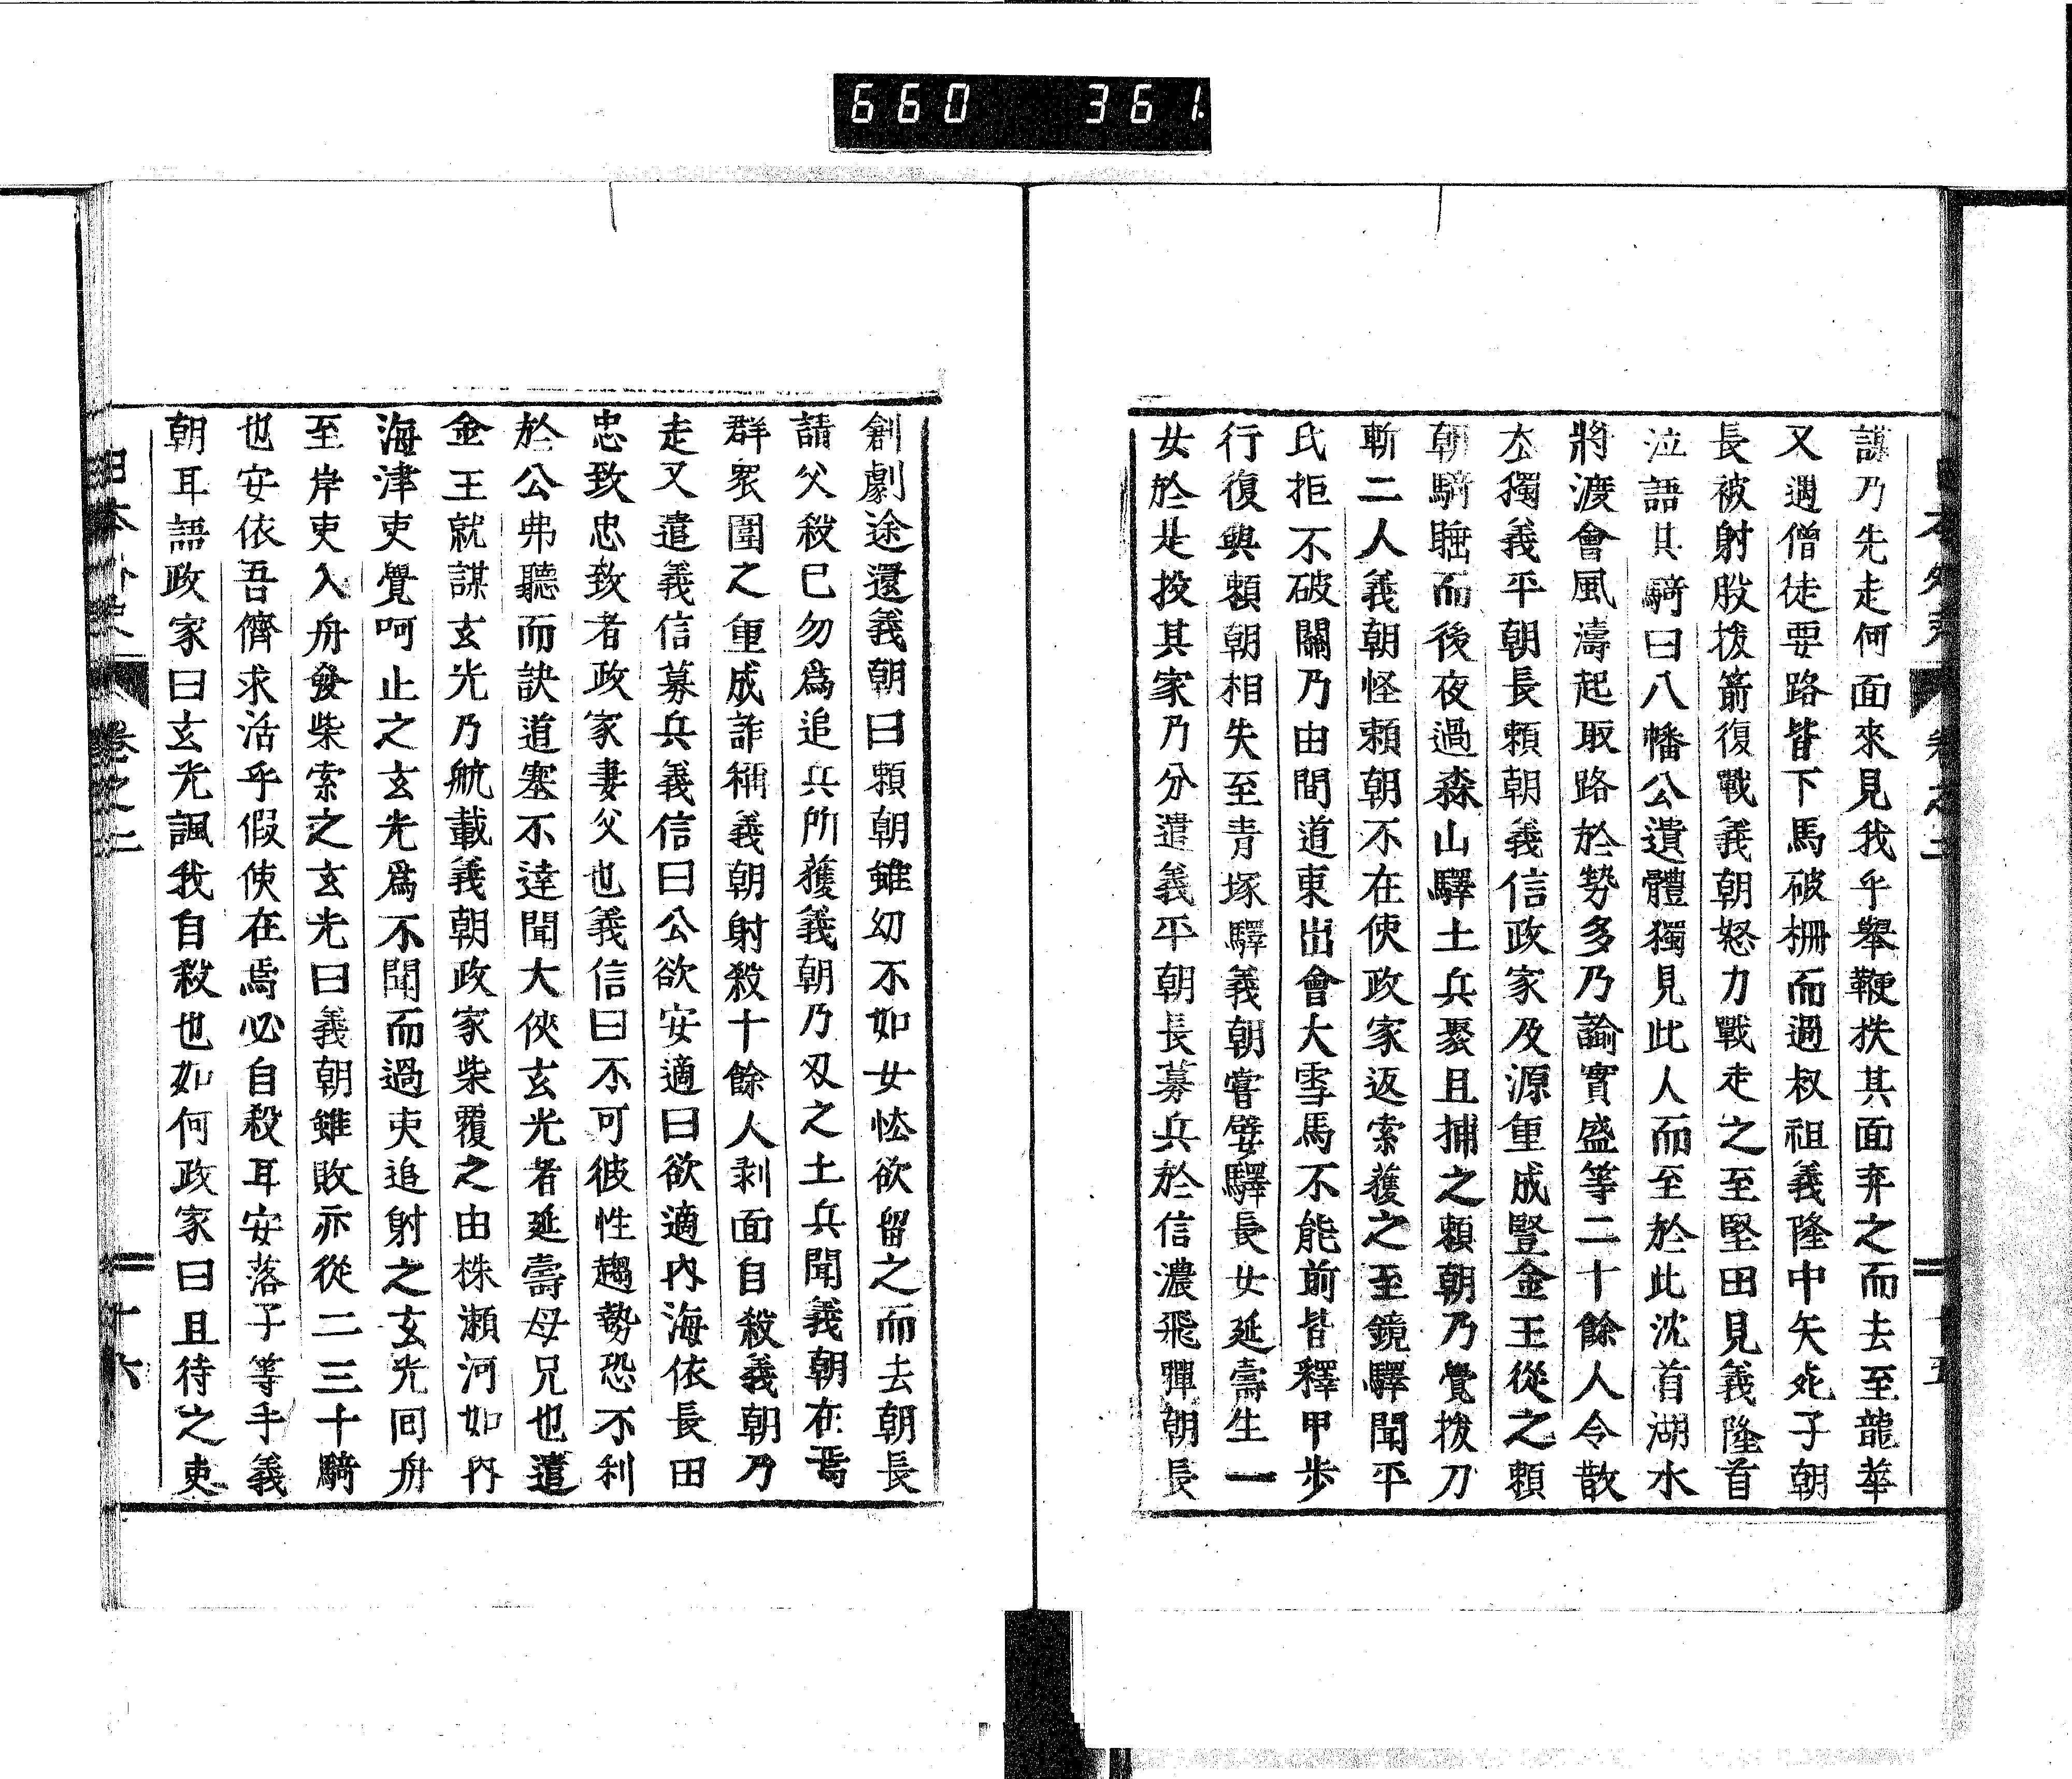 660 361
謀乃先走何面來見我乎舉鞭抶其面弃之而去至龍華
又遇僧徒要路皆下馬破柵而過叔祖義隆中矢死子朝
長被射股拔箭復戰義朝怒力戰走之至堅田見義隆首
泣語其騎曰八幡公遺體獨見此人而至於此沈首湖水
將渡會風濤起取路於勢多乃諭實盛等二十餘人令散
去獨義平朝長賴朝義信政家及源重成豎金王從之賴
朝騎睡而後夜過森山驛土兵聚且捕之賴朝乃覺拔刀
斬二人義朝怪賴朝不在使政家返索獲之至鏡驛聞平
氏拒不破關乃由間道東出會大雪馬不能前皆釋甲步
行復與賴朝相失至青塚驛義朝嘗嬖驛長女延壽生一
女於是投其家乃分遣義平朝長募兵於信濃飛驒朝長
創劇途還義朝曰賴朝雖幼不如女怯欲留之而去朝長
請父殺已勿爲追兵所獲義朝乃刃之土兵聞義朝在焉
群衆圍之重成詐稱義朝射殺十餘人剥面自殺義朝乃
走又遣義信募兵義信曰公欲安適曰欲適內海依長田
忠致忠致者政家妻父也義信曰不可彼性趨勢恐不利
於公弗聽而訣道塞不達聞大俠玄光者延壽母兄也遣
金王就謀玄光乃航載義朝政家柴覆之由株瀨河如內
海津吏覺呵止之玄光爲不聞而過吏追射之玄光回舟
至岸吏入舟發柴索之玄光曰義朝雖敗亦從二三十騎
也安依吾儕求活乎假使在焉必自殺耳安落子等手義
朝耳語政家曰玄光諷我自殺也如何政家曰且待之吏
日本外史 卷之二 十六